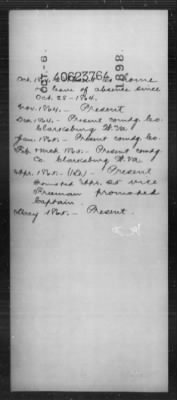 OCT. 6.
40623764
1898
Oct. 1864. Absent at home
on leave of absence since
Oct. 28-1864.
Nov. 1864. - Present
Dec. 1864. - Present comdg. Co.
Clarksburg W. Va.
Jan. 1865. - Present comdg. Co.
Feb. & Mch. 1865. - Present comdg
Co. Clarksburg W. Va.
Apr. 1865. - Present
Apr. 25 vice
Freeman promoted
Captain.
May 1865. - Present.